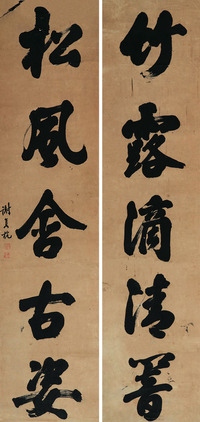 竹露滴清響
松風含古姿
謝